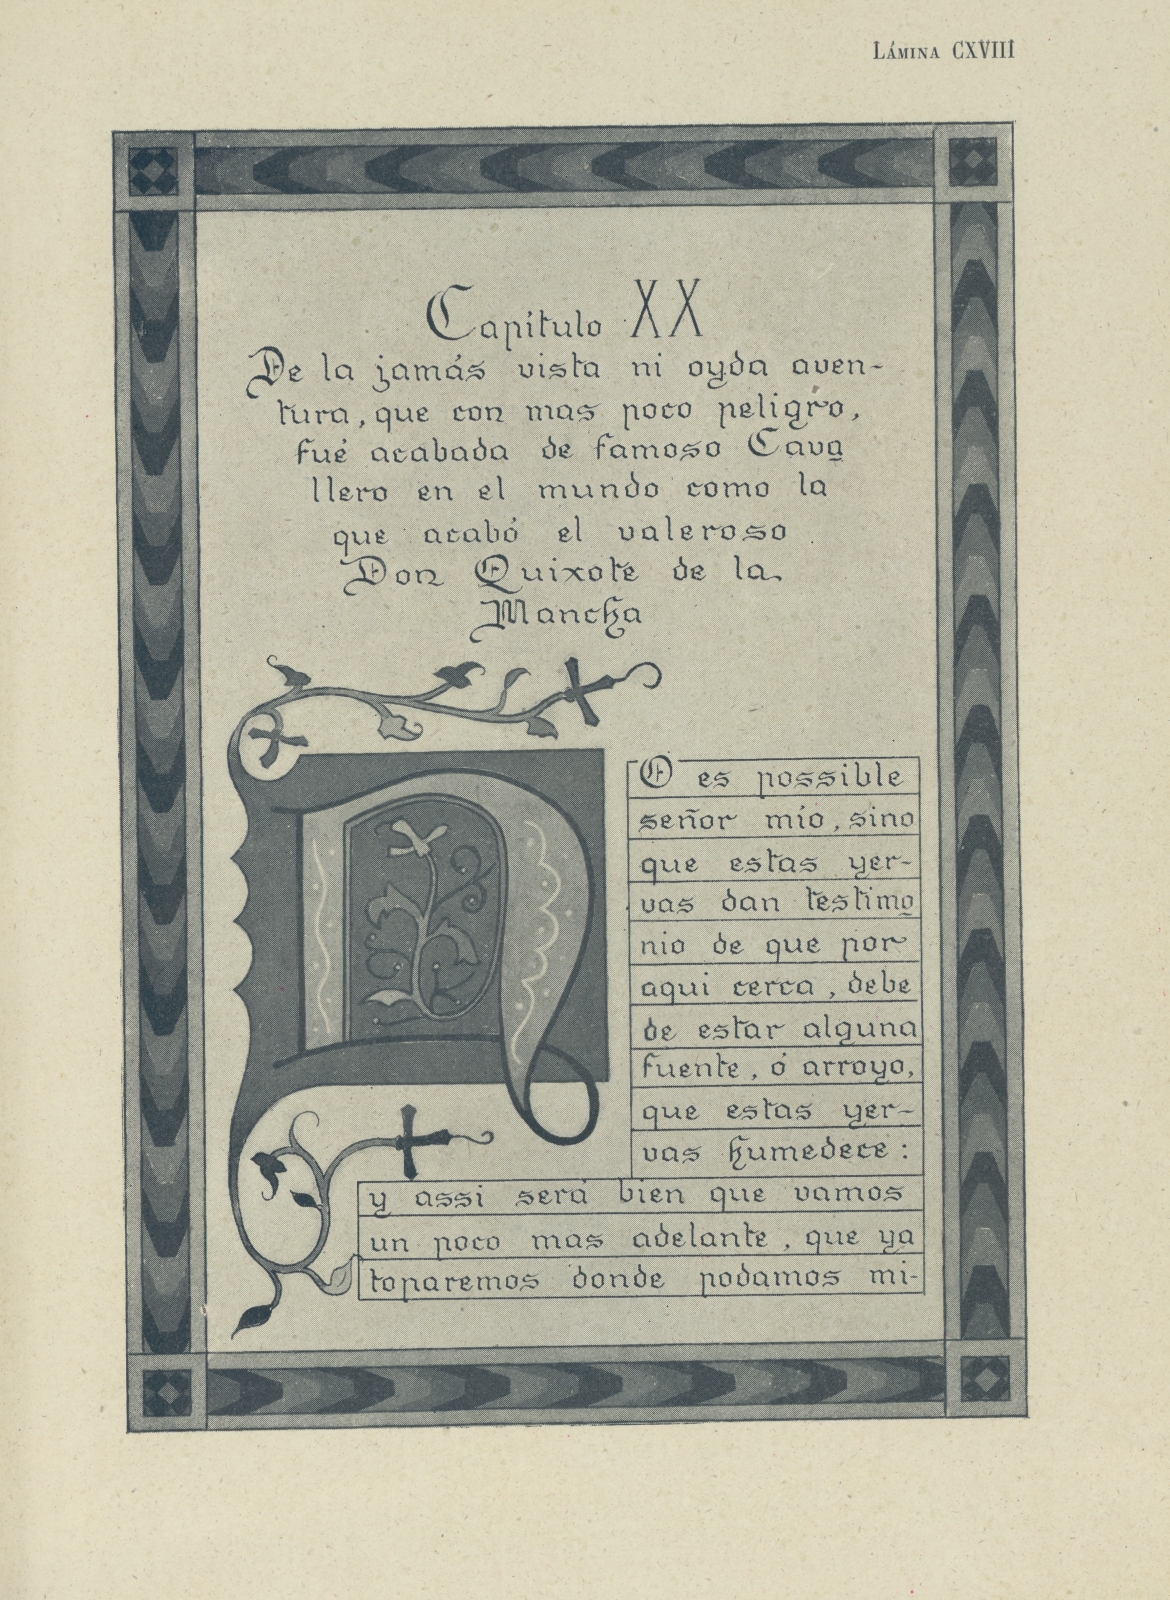 Lámina CXVIII
Capítulo XX
De la jamás vista ni oyda aven-
tura, que con mas poco peligro,
fué acabada de famoso Cava
llero en el mundo como la
que acabó el valeroso
Don Quixote de la
Mancha
N
O es possible
señor mío, sino
que estas yer-
vas dan testimo
nio de que por
aqui cerca, debe
de estar alguna
fuente, ó arroyo,
que estas yer-
vas humedece:
y assi será bien que vamos
un poco mas adelante, que ya
toparemos donde podamos mi-